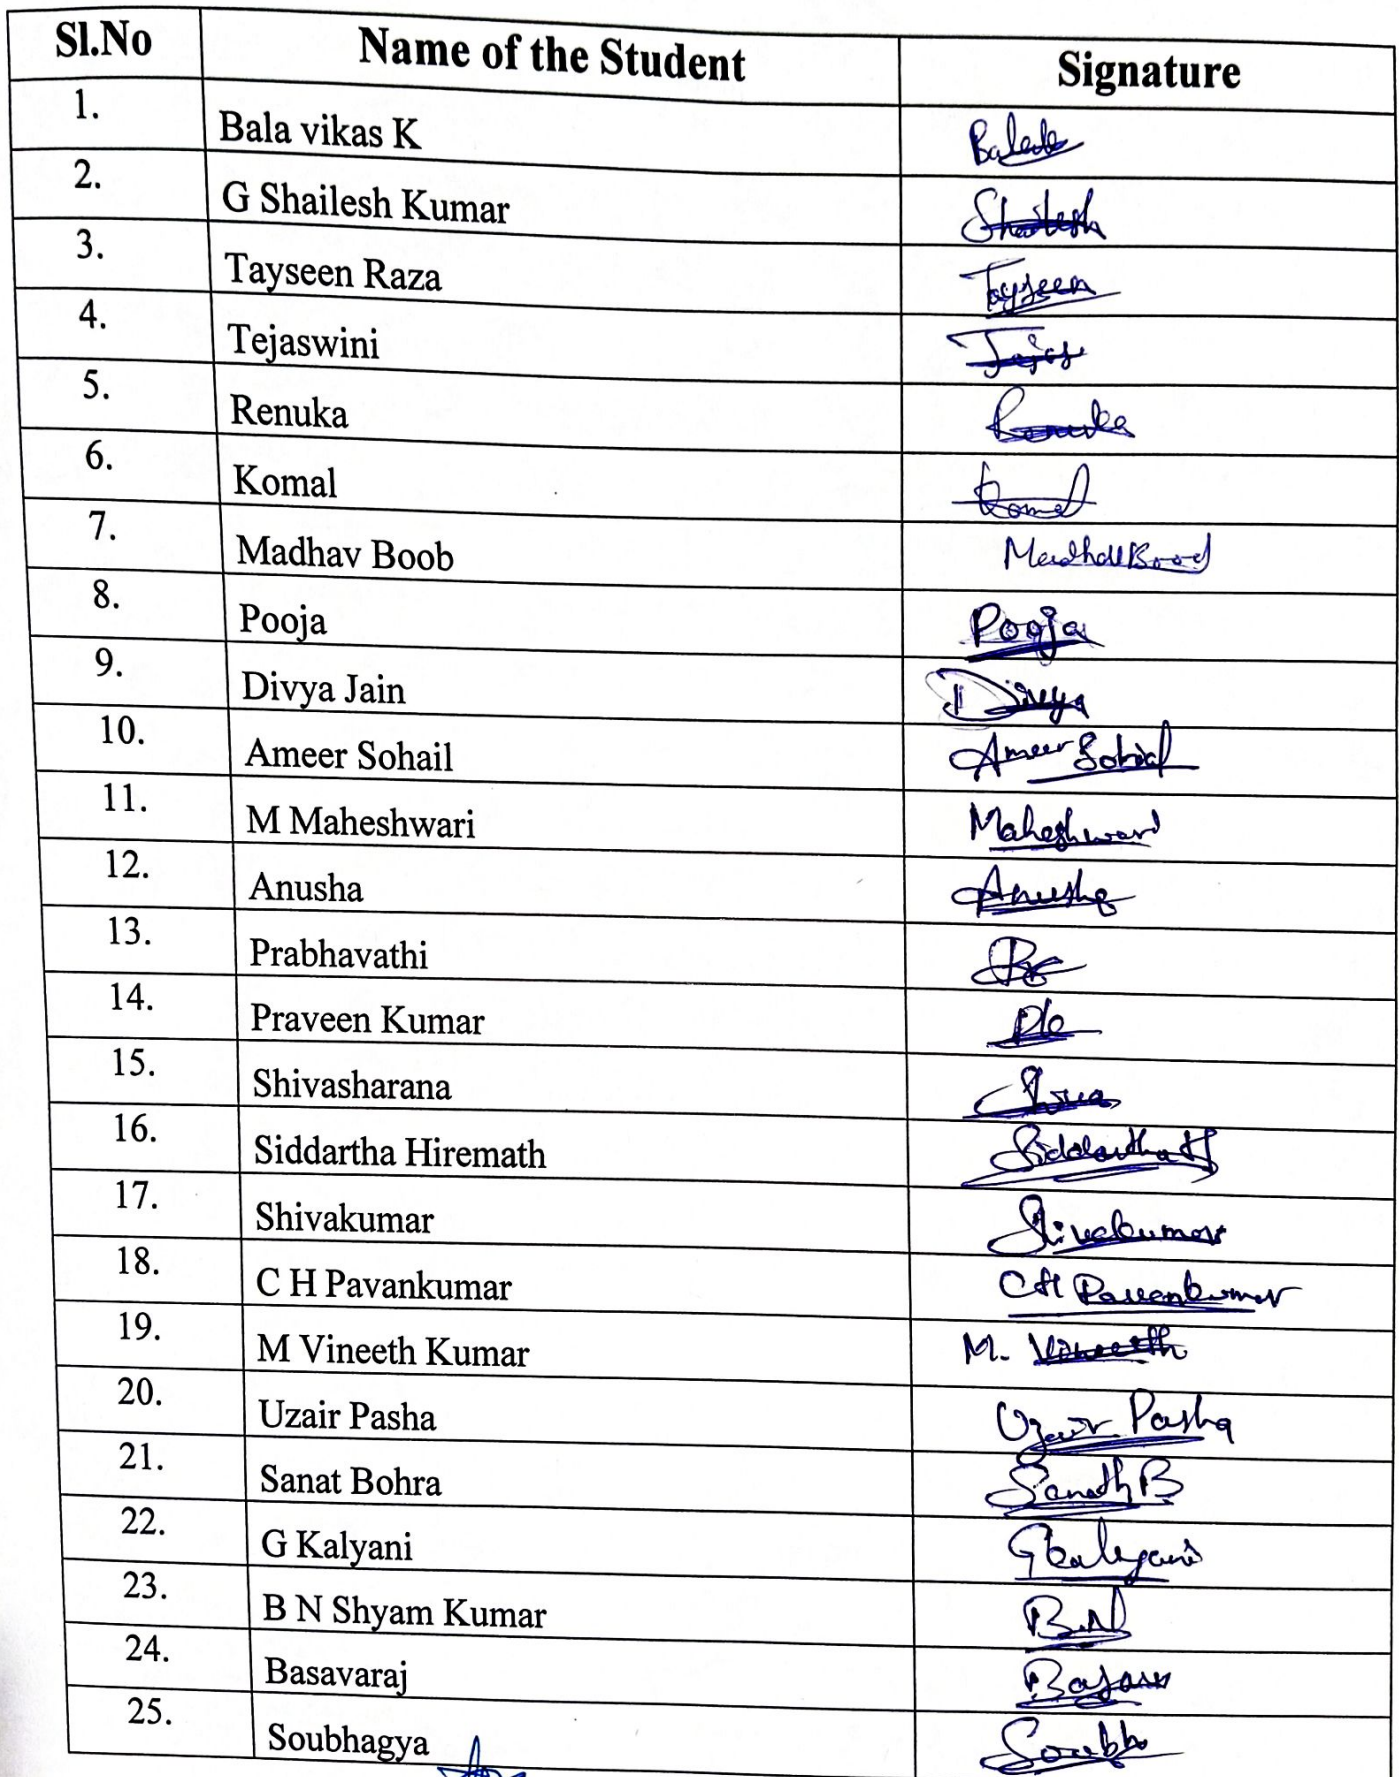 Sl.No Name of the Student Signature
1. Bala vikas K
2. G Shailesh Kumar Shailesh
3. Tayseen Raza Tayseen
4. Tejaswini
5. Renuka Renuka
6. Komal Komal
7. Madhav Boob
8. Pooja Pooja
9. Divya Jain Divya
10. Ameer Sohail Ameer
11. M Maheshwari Maheshwari
12. Anusha Anusha
13. Prabhavathi
14. Praveen Kumar
15. Shivasharana
16. Siddartha Hiremath Siddartha H
17. Shivakumar Shivakumar
18. C H Pavankumar CH Pavankumar
19. M Vineeth Kumar M. Vineeth
20. Uzair Pasha Uzair Pasha
21. Sanat Bohra Sanath B
22. G Kalyani G Kalyani
23. B N Shyam Kumar B.N
24. Basavaraj
25. Soubhagya